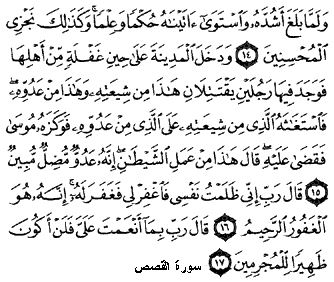 وَلَمَّا بَلَغَ أَشُدَّهُۥ وَٱسْتَوَىٰٓ ءَاتَيْنَٰهُ حُكْمًا وَعِلْمًا ۚ وَكَذَٰلِكَ نَجْزِى
ٱلْمُحْسِنِينَ ١٤ وَدَخَلَ ٱلْمَدِينَةَ عَلَىٰ حِينِ غَفْلَةٍ مِّنْ أَهْلِهَا
فَوَجَدَ فِيهَا رَجُلَيْنِ يَقْتَتِلَانِ هَٰذَا مِن شِيعَتِهِۦ وَهَٰذَا مِنْ عَدُوِّهِۦ ۖ
فَٱسْتَغَٰثَهُ ٱلَّذِى مِن شِيعَتِهِۦ عَلَى ٱلَّذِى مِنْ عَدُوِّهِۦ فَوَكَزَهُۥ مُوسَىٰ
فَقَضَىٰ عَلَيْهِ ۖ قَالَ هَٰذَا مِنْ عَمَلِ ٱلشَّيْطَٰنِ ۖ إِنَّهُۥ عَدُوٌّ مُّضِلٌّ مُّبِينٌ
١٥ قَالَ رَبِّ إِنِّى ظَلَمْتُ نَفْسِى فَٱغْفِرْ لِى فَغَفَرَ لَهُۥٓ ۚ إِنَّهُۥ هُوَ
ٱلْغَفُورُ ٱلرَّحِيمُ ١٦ قَالَ رَبِّ بِمَآ أَنْعَمْتَ عَلَىَّ فَلَنْ أَكُونَ
ظَهِيرًا لِّلْمُجْرِمِينَ ١٧
سورة القصص